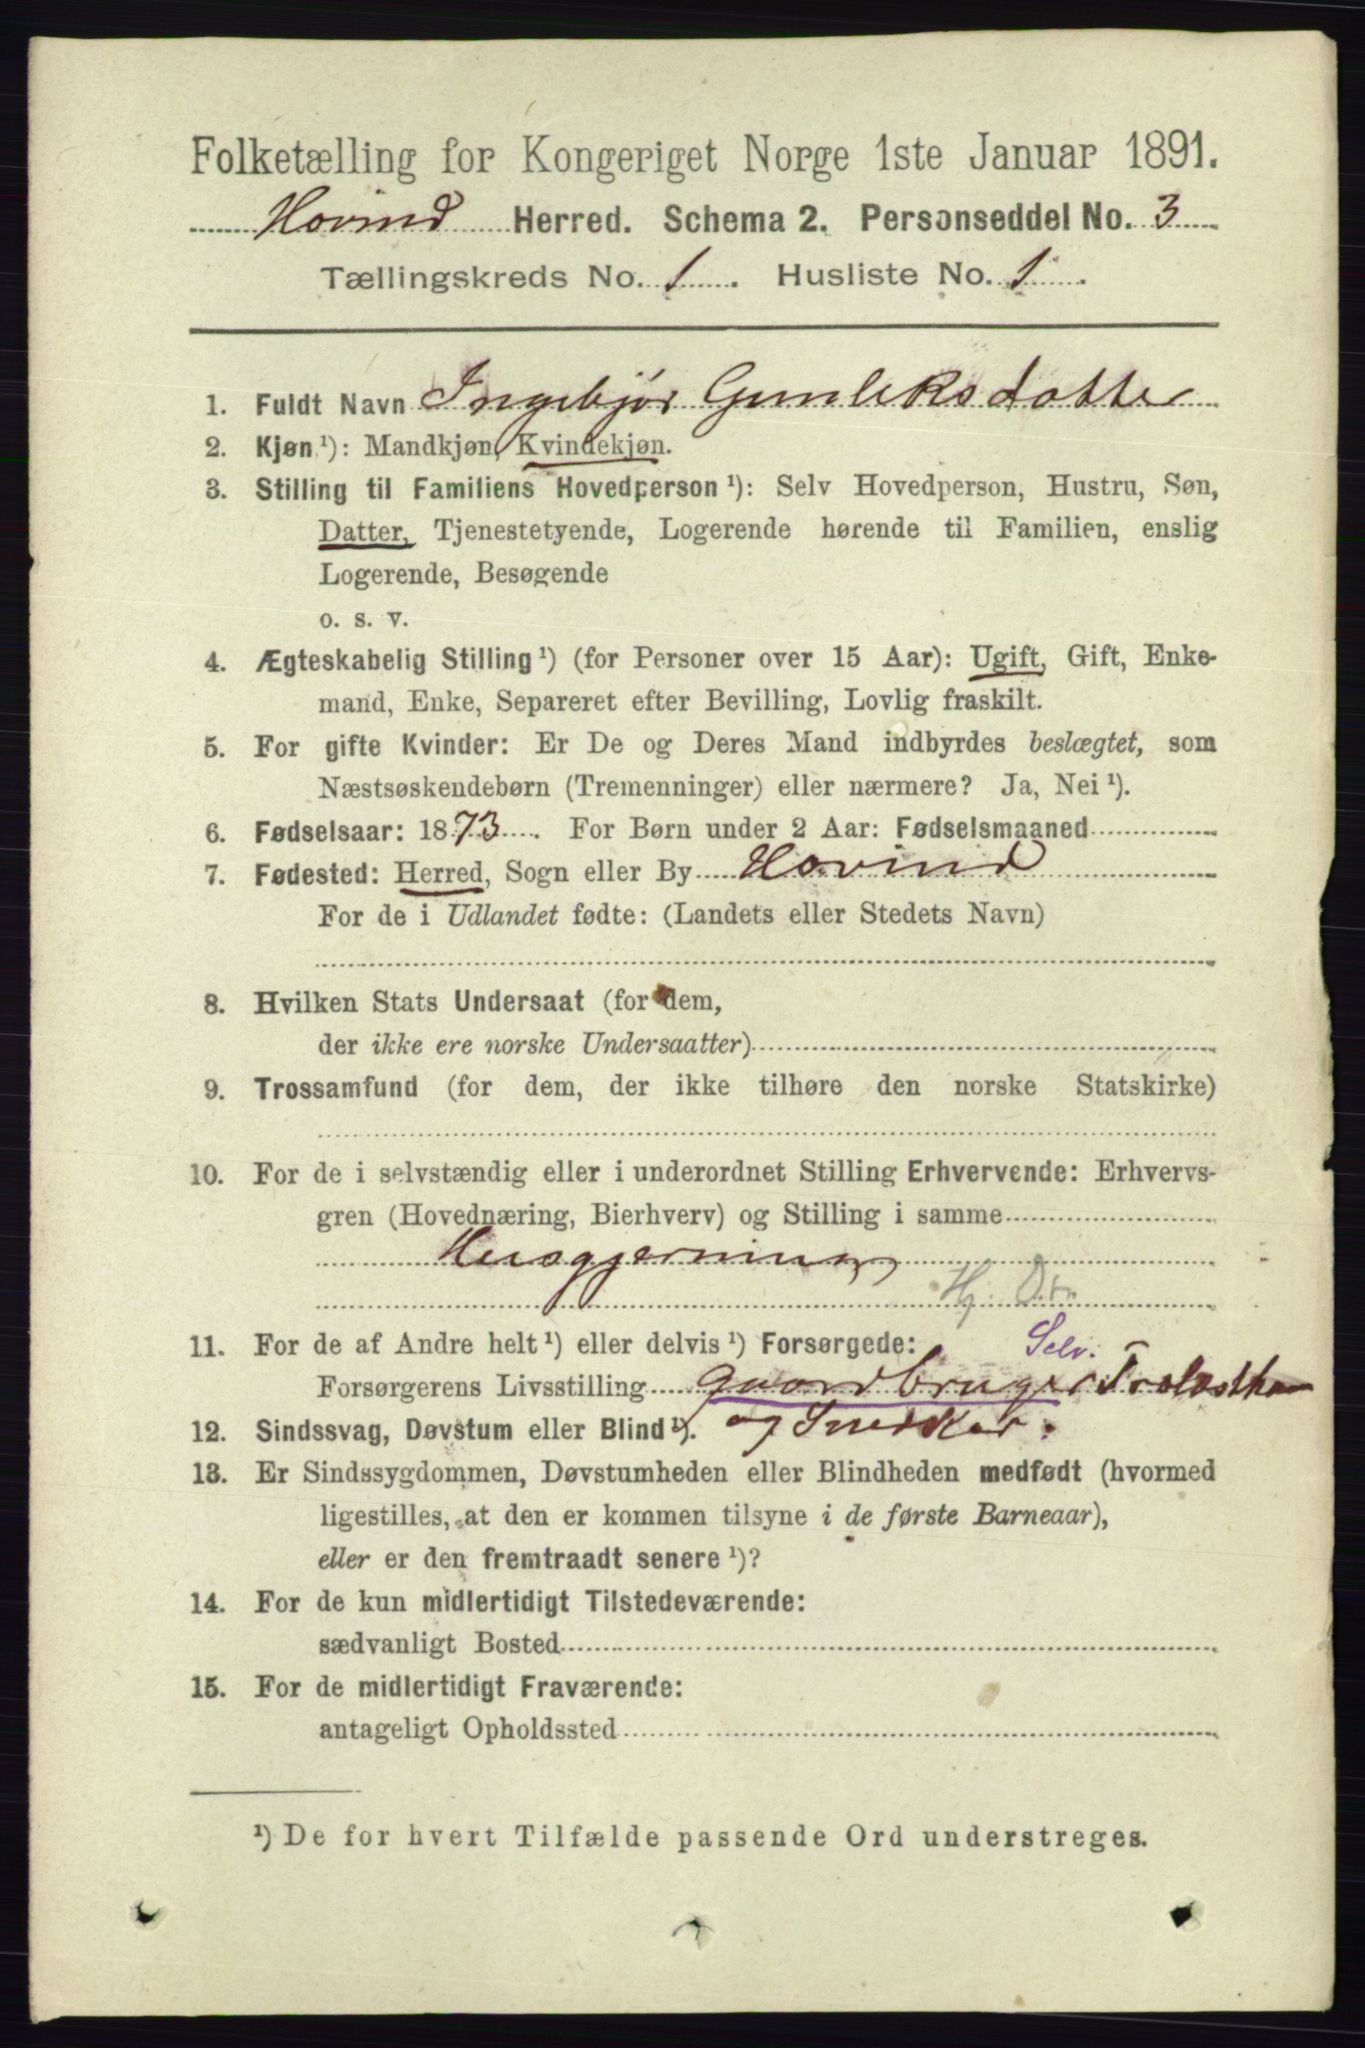 Folketælling for Kongeriget Norge 1ste Januar 1891.
Hovind Herred. Schema 2. Personseddel No. 3
Tællingskreds No. 1. Husliste No. 1.
1. Fuldt Navn Ingebjør Gunleksdatter
2. Kjøn ¹): Mandkjøn, Kvindekjøn.
3. Stilling til Familiens Hovedperson ¹): Selv Hovedperson, Hustru, Søn,
Datter, Tjenestetyende, Logerende hørende til Familien, enslig
Logerende, Besøgende
o. s. v.
4. Ægteskabelig Stilling ¹) (for Personer over 15 Aar): Ugift, Gift, Enke-
mand, Enke, Separeret efter Bevilling, Lovlig fraskilt.
5. For gifte Kvinder: Er De og Deres Mand indbyrdes beslægtet, som
Næstsøskendebørn (Tremenninger) eller nærmere? Ja, Nei ¹).
6. Fødselsaar: 1873. For Børn under 2 Aar: Fødselsmaaned
7. Fødested: Herred, Sogn eller By Hovind
For de i Udlandet fødte: (Landets eller Stedets Navn)
8. Hvilken Stats Undersaat (for dem,
der ikke ere norske Undersaatter)
9. Trossamfund (for dem, der ikke tilhøre den norske Statskirke)
10. For de i selvstændig eller i underordnet Stilling Erhvervende: Erhvervs-
gren (Hovednæring, Bierhverv) og Stilling i samme
Husgjerning
Hj. Dtr
11. For de af Andre helt ¹) eller delvis ¹) Forsørgede: Selv.
Forsørgerens Livsstilling Gaardbruger
12. Sindssvag, Døvstum eller Blind ¹). og Snedker.
13. Er Sindssygdommen, Døvstumheden eller Blindheden medfødt (hvormed
ligestilles, at den er kommen tilsyne i de første Barneaar),
eller er den fremtraadt senere ¹)?
14. For de kun midlertidigt Tilstedeværende:
sædvanligt Bosted
15. For de midlertidigt Fraværende:
antageligt Opholdssted
¹) De for hvert Tilfælde passende Ord understreges.